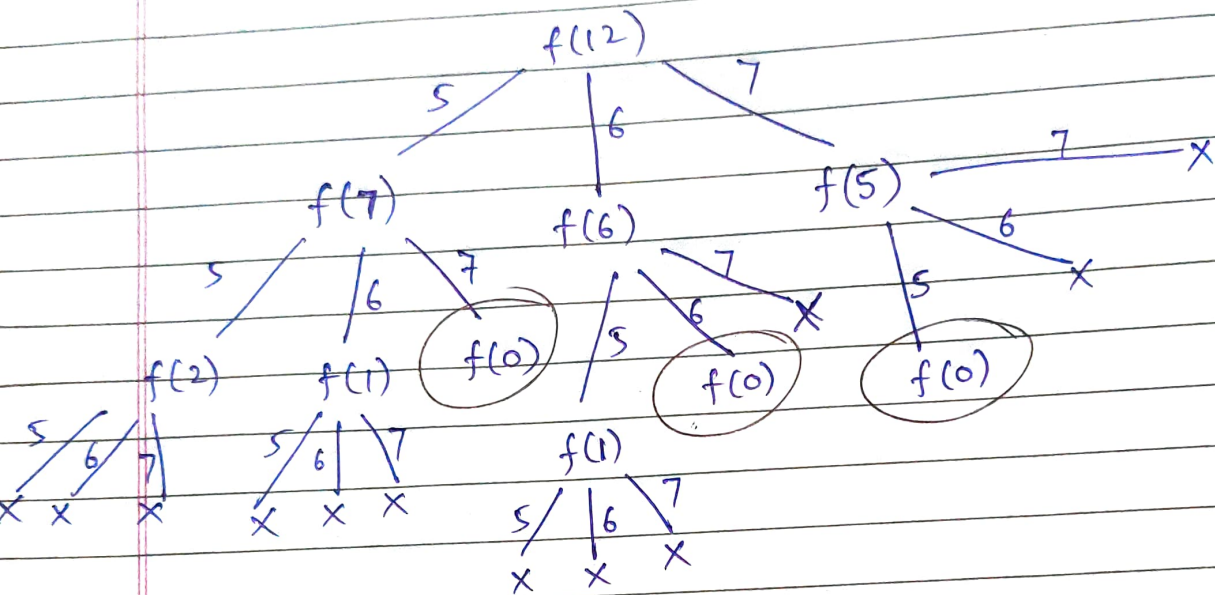 f(12)
5 6 7
f(7) f(6) f(5) 7 x
5 6 7 5 6 7 x 5 6 x
f(2) f(1) f(0) f(0) f(0)
5 6 7 5 6 7 f(1)
x x x x x x 5 6 7
x x x